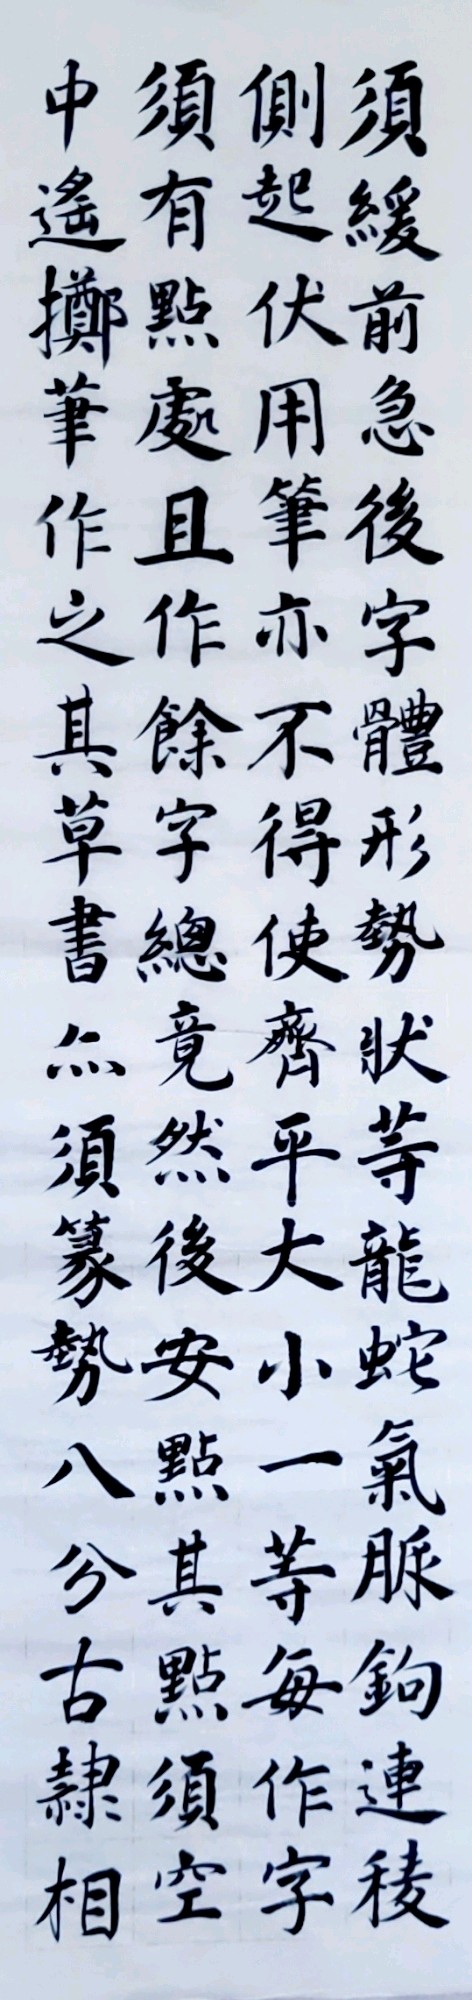 須緩前急後字體形勢狀等龍蛇氣脈鉤連稜
側起伏用筆亦不得使齊平大小一等每作字
須有點處且作餘字總竟然後安點其點須空
中遙擲筆作之其草書亦須篆勢八分古隸相